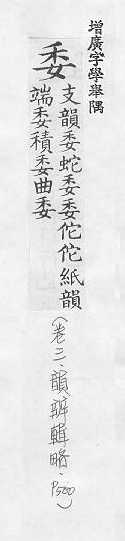 增廣字學舉隅
委
支韻委蛇委委佗佗紙韻
端委積委曲委
(卷三、韻辨輯略、P500)